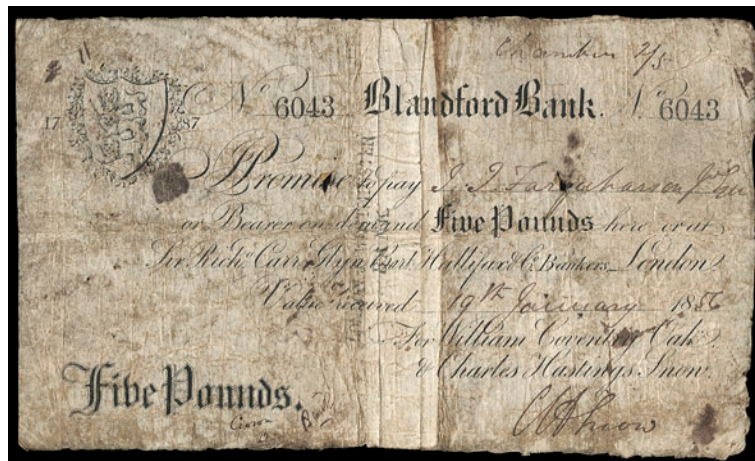 Chamber 2/5
No 6043 Blandford Bank. No 6043
17 87
I Promise to pay J. J. Farquharson Esqr
or Bearer on demand Five Pounds here or at
Sir Richd. Carr Glyn Bart. Hallifax & Co. Bankers London
Value received 19th January 1856
For William Coventry Oak
& Charles Hastings Snow.
Five Pounds.
C H Snow